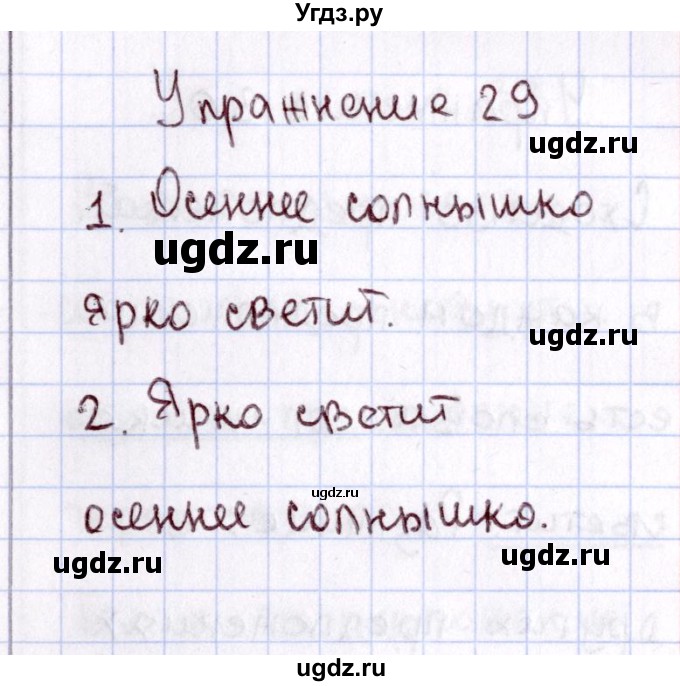 Угдз.ру
Упражнение 29
ugdz.ru
1. Осеннее солнышко
ugdz.ru
ярко светит.
ugdz.ru
2. Ярко светит
ugdz.ru
осеннее солнышко.
ugdz.ru
ugdz.ru
ugdz.ru